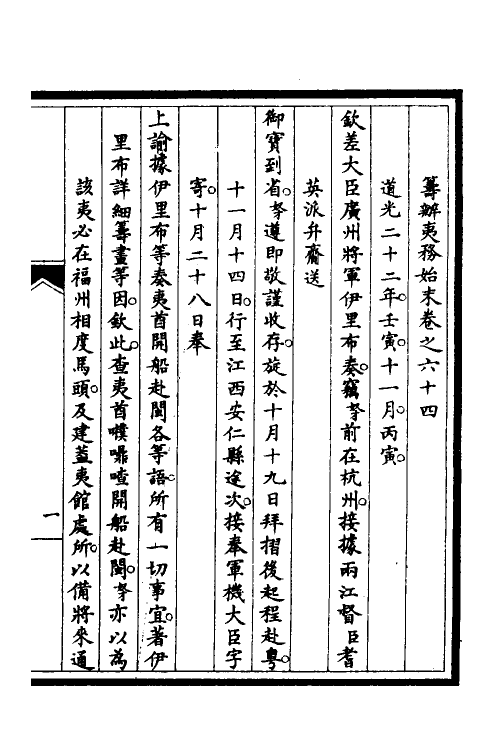 籌辦夷務始末卷之六十四
道光二十二年。壬寅。十一月。丙寅。
欽差大臣廣州將軍伊里布奏。竊孥前在杭州。接據兩江督臣耆
英派弁齎送
御寶到省。孥遵即敬謹收存。旋於十月十九日拜摺後起程赴粵。
十一月十四日。行至江西安仁縣途次。接奉軍機大臣字
寄。十月二十八日奉
上諭據伊里布等奏夷酋開船赴閩各等語。所有一切事宜。著伊
里布詳細籌畫等因。欽此。查夷酋㗶嚦喳開船赴閩。孥亦以為
該夷必在福州相度馬頭。及建蓋夷館處所。以備將來通
一